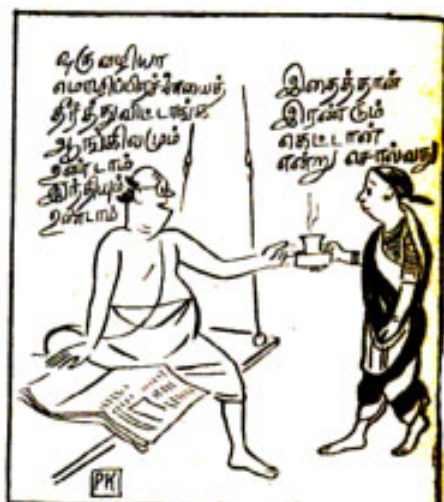 ஒரு வழியா
மொழிப்பிரச்னையைத்
தீர்த்துவிட்டாங்க
ஆங்கிலமும்
உண்டாம்
இந்தியும்
உண்டாம்
இதைத்தான்
இரண்டும்
கெட்டான்
என்று சொல்வது
PK